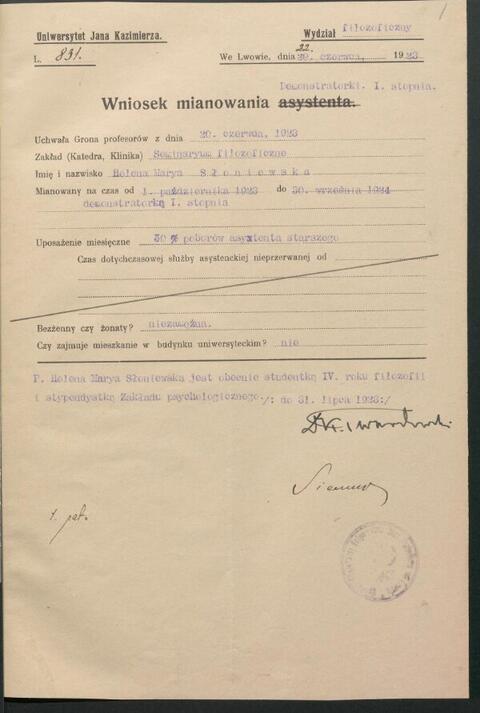 1
Uniwersytet Jana Kazimierza.
Wydział filozoficzny
L. 831.
We Lwowie, dnia 22. czerwca, 1923
Demonstratorki. I. stopnia.
Wniosek mianowania asystenta.
Uchwała Grona profesorów z dnia 20. czerwca, 1923
Zakład (Katedra, Klinika) Seminaryum filozoficzne
Imię i nazwisko Helena Marya Słoniewska
Mianowany na czas od 1. października 1923 do 30. września 1924
demonstratorką I. stopnia
Uposażenie miesięczne 50 % poborów asystenta starszego
Czas dotychczasowej służby asystenckiej nieprzerwanej od
Bezżenny czy żonaty? niezamężna.
Czy zajmuje mieszkanie w budynku uniwersyteckim? nie
P. Helena Marya Słoniewska jest obecnie studentką IV. roku filozofii
i stypendystką Zakładu psychologicznego./: do 31. lipca 1923:/
K. Twardowski